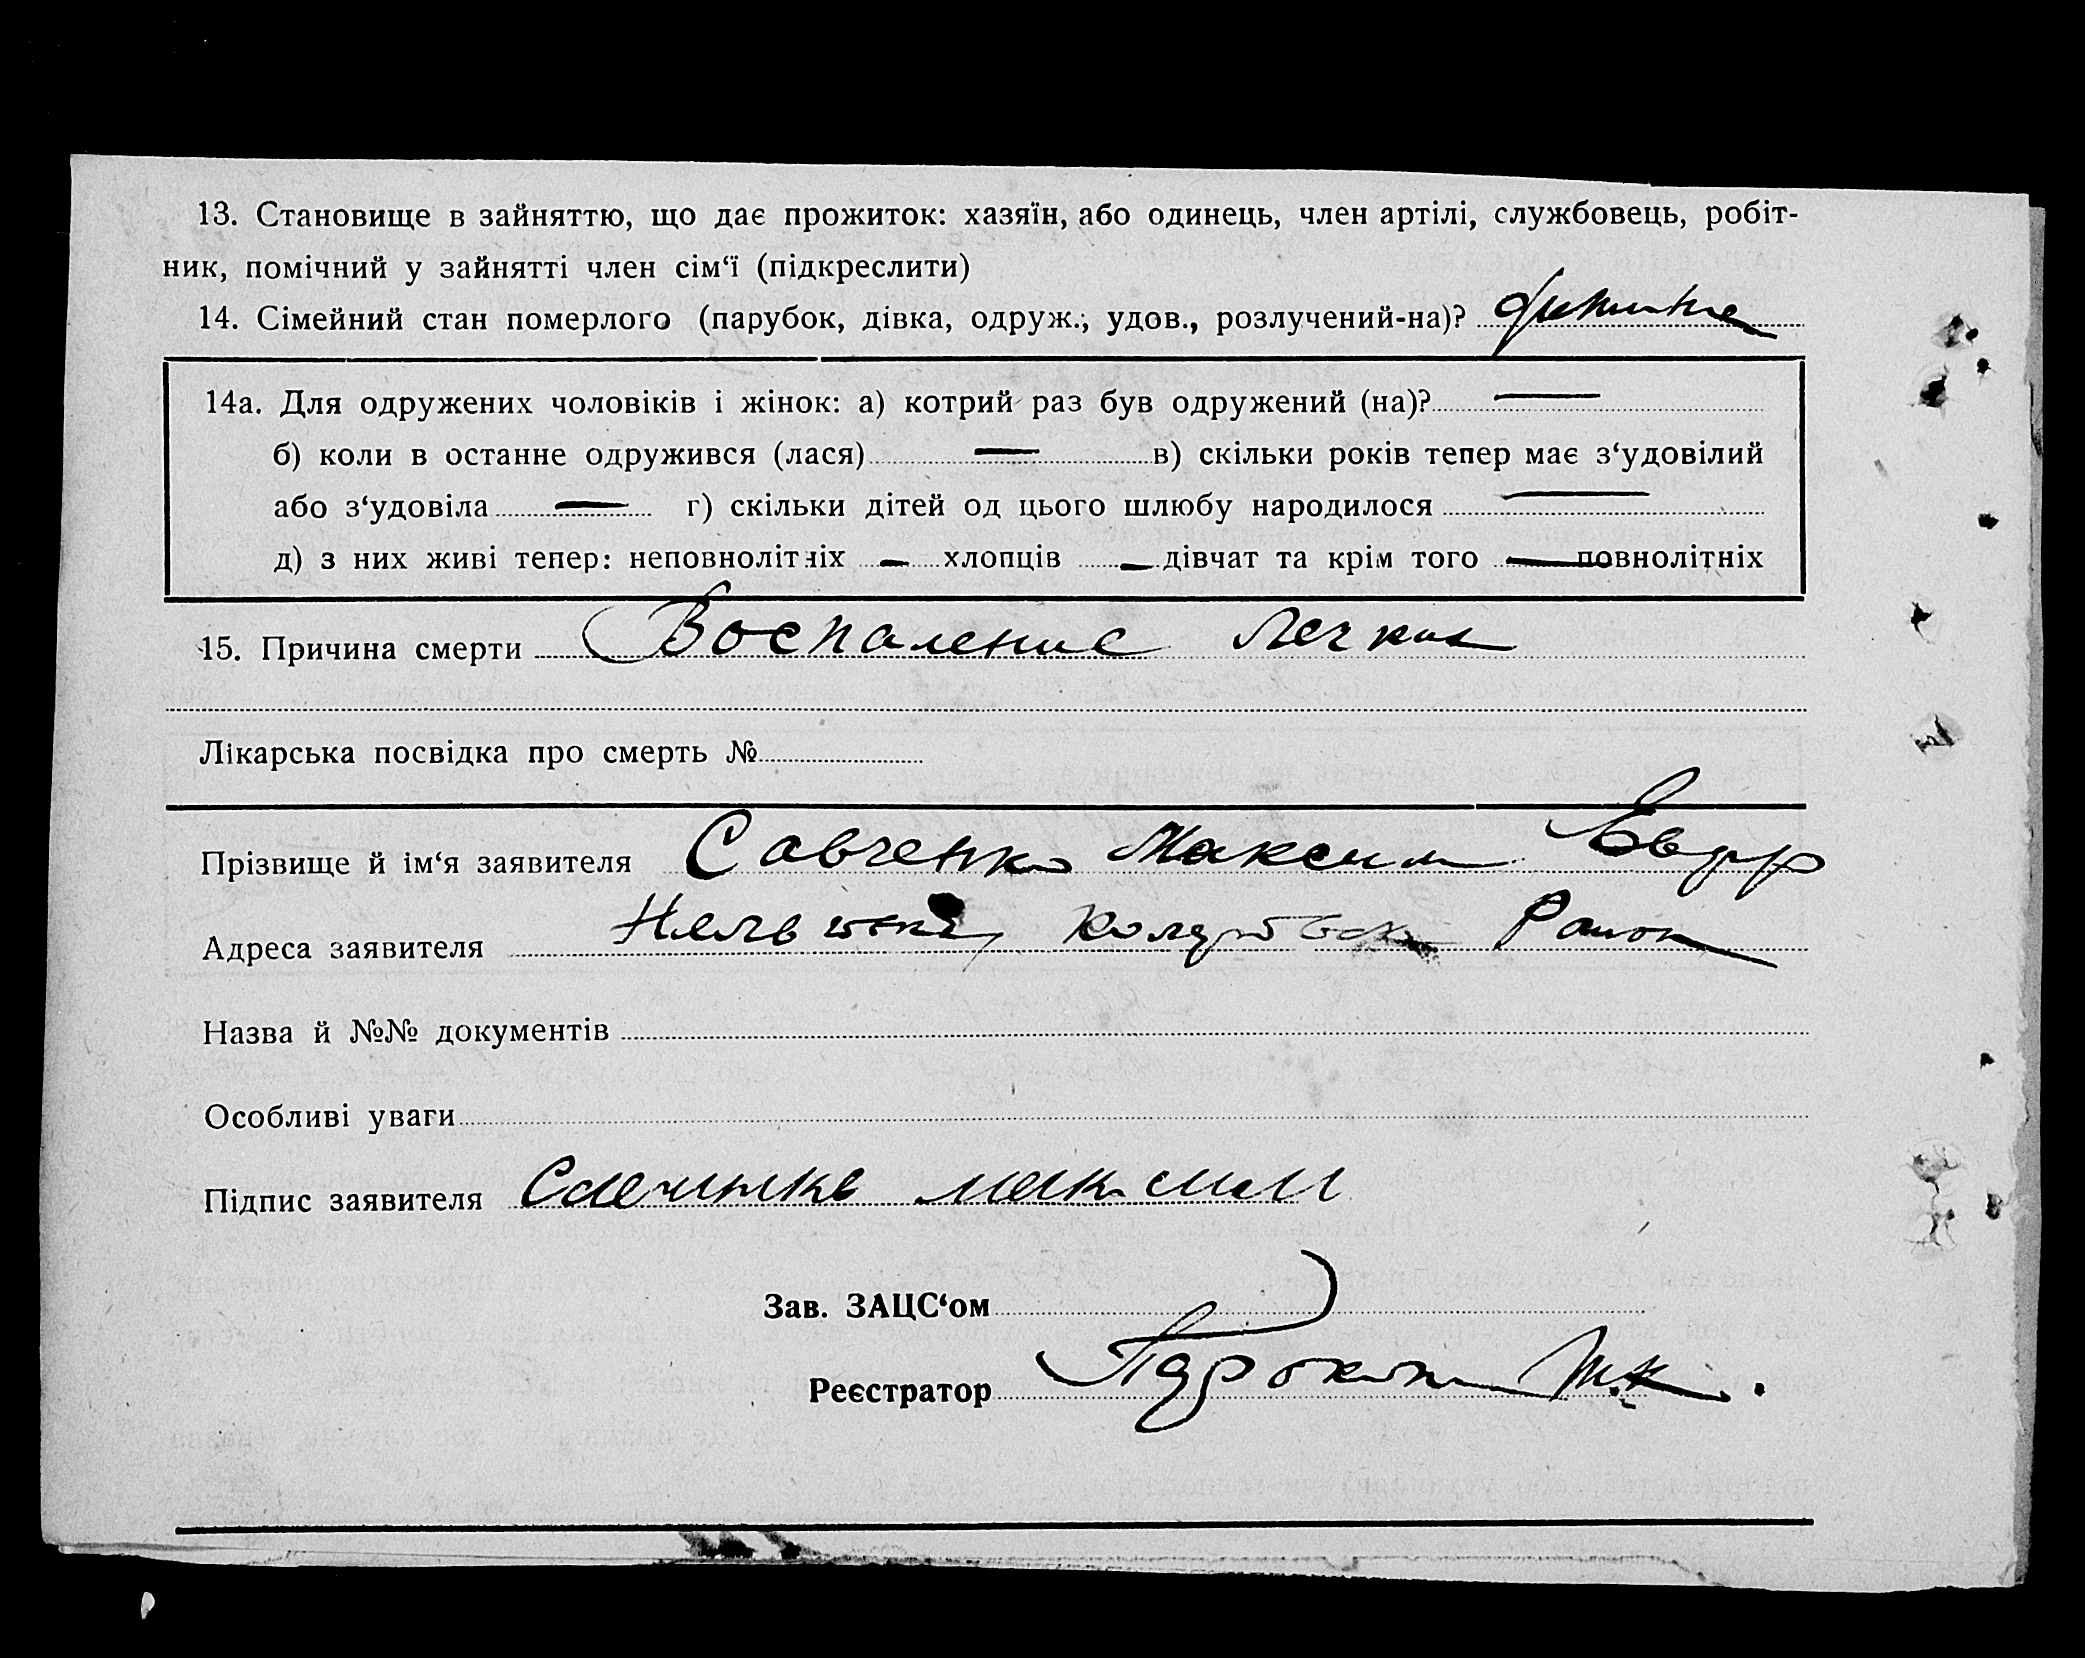 13. Становище в зайняттю, що дає прожиток: хазяїн, або одинець, член артілі, службовець, робіт-
ник, помічний у зайнятті член сім‘ї (підкреслити)
14. Сімейний стан померлого (парубок, дівка, одруж., удов., розлучений-на)?
14а. Для одружених чоловіків і жінок: а) котрий раз був одружений (на)? —
б) коли в останне одружився (лася) — в) скільки років тепер має з‘удовілий
або з‘удовіла — г) скільки дітей од цього шлюбу народилося —
д) з них живі тепер: неповнолітніх — хлопців — дівчат та крім того — повнолітніх
15. Причина смерти Воспаление Легких
Лікарська посвідка про смерть №
Прізвище й ім‘я заявителя Савченко Максим
Адреса заявителя Район
Назва й №№ документів
Особливі уваги
Підпис заявителя Савченко максим
Зав. ЗАЦС‘ом
Реєстратор